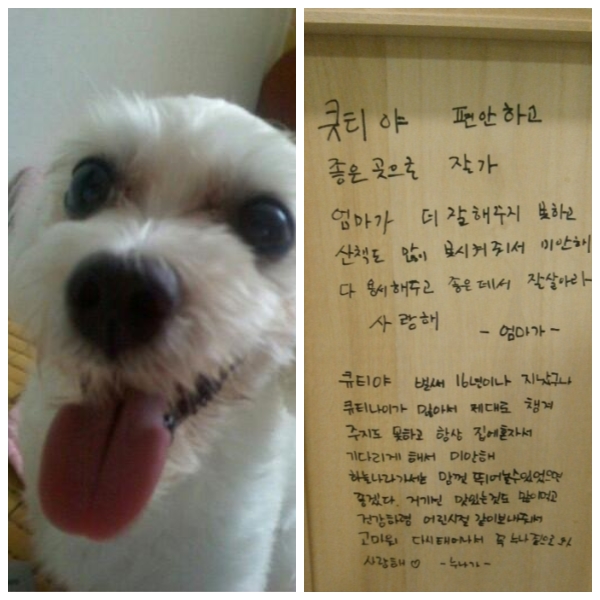 큐티야 편안하고
좋은곳으로 잘가
엄마가 더 잘해주지 못하고
산책도 많이 못시켜줘서 미안해
다 용서해주고 좋은데서 잘살아라
사랑해 -엄마가-
큐티야 벌써 16년이나 지났구나
큐티나이가 많아서 제대로 챙겨
주지도 못하고 항상 집에혼자서
기다리게 해서 미안해
하늘나라가서는 맘껏 뛰어놀수있었으면
좋겠다. 거기선 맛있는것도 많이먹고
건강하렴 어린시절 같이보내줘서
고마워 다시태어나서 꼭 누나
사랑해♡ -누나가-